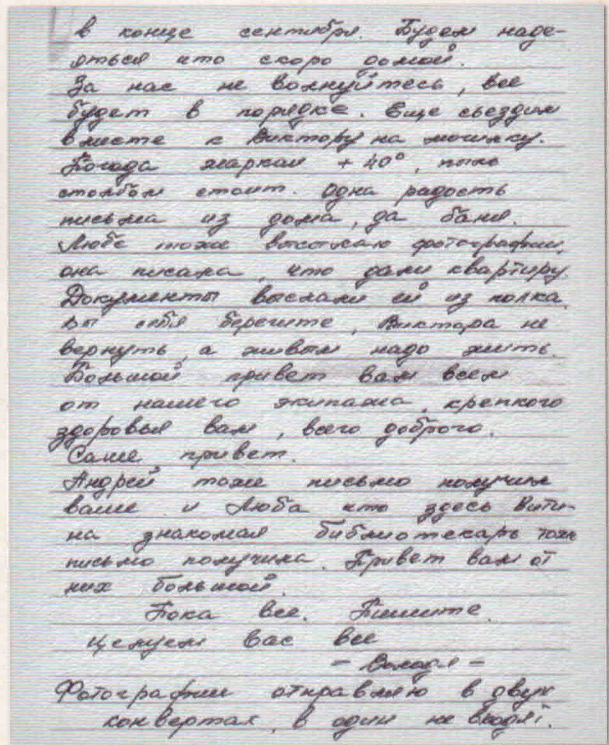 в конце сентября. Будем наде-
яться что скоро домой.
За нас не волнуйтесь, все
будет в порядке. Еще съездим
вместе к Виктору на могилку.
Погода жаркая +40°, пыль
столбом стоит. Одна радость
письма из дома, да баня.
Любе тоже высылаю фотографии,
она писала, что дали квартиру.
Документы выслали ей из полка.
Вы себя берегите, Виктора не
вернуть, а живым надо жить.
Большой привет вам всем
от нашего экипажа, крепкого
здоровья вам, всего доброго.
Саше привет.
Андрей тоже письмо получил
ваше и Люба что здесь Вити-
на знакомая библиотекарь тоже
письмо получила. Привет вам от
них большой.
Пока все. Пишите.
Целуем вас все
- Володя -
Фотографии отправляю в двух
конвертах, в один не входят.